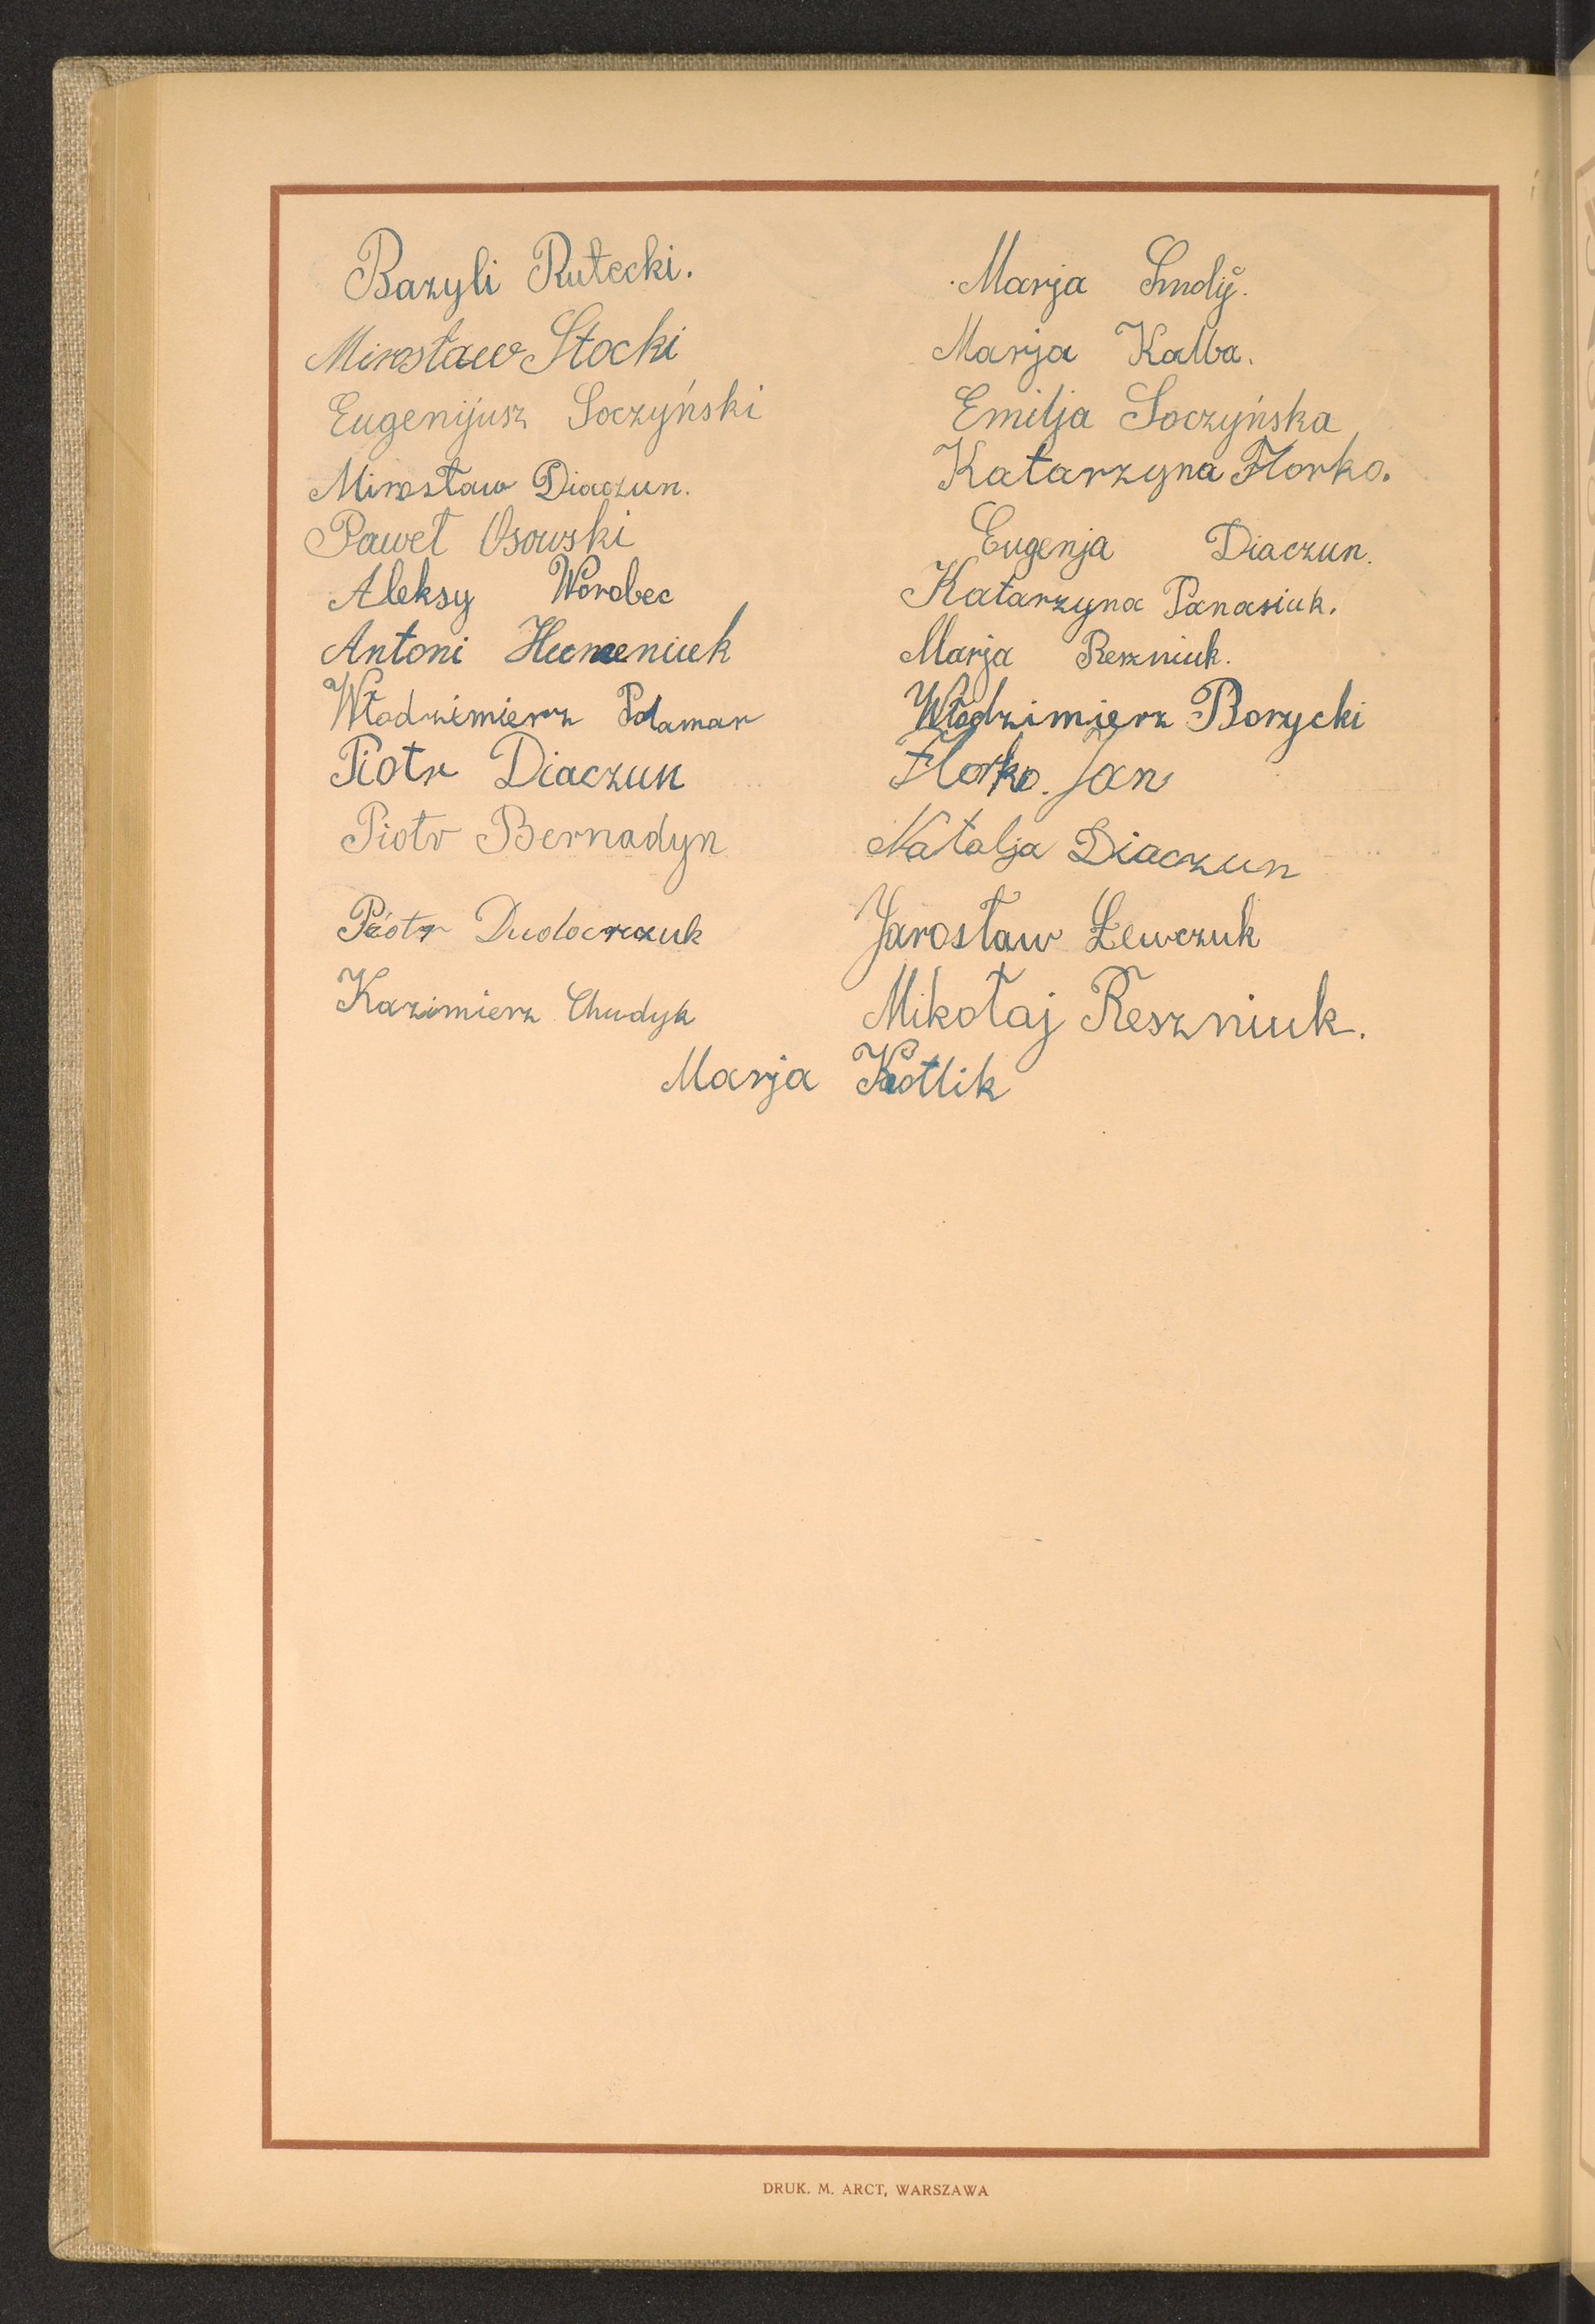 Bazyli Rutecki.
Mirosław Stocki
Eugenijusz Soczyński
Mirosław Diaczun.
Paweł Osowski
Aleksy Worobec
Antoni Humeniuk
Włodzimierz Połamar
Piotr Diaczun
Piotr Bernadyn
Piotr
Kazimierz Chudyk
Marja Smolij.
Marja Kalba.
Emilja Soczyńska
Katarzyna Florko.
Eugenja Diaczun.
Katarzyna Panasiuk.
Marja Reszniuk.
Włodzimierz Borycki
Florko. Jan
Natalja Diaczun
Jarosław Lewczuk
Mikołaj Reszniuk.
Marja Kotlik
DRUK. M. ARCT, WARSZAWA